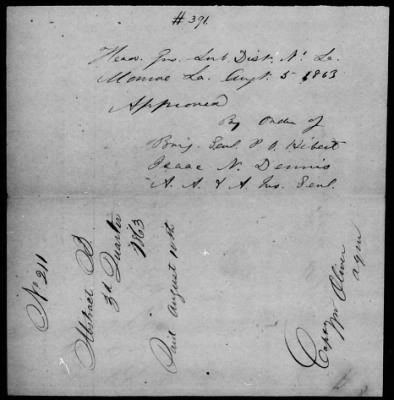 # 391.
Head Qrs. Sub Dist. No. La.
Monroe La. Augt. 5th 1863
Approved
By Order of
Brig. Genl. P. O. Hebert
Isaac N. Dennis
A. A. & A Ins. Genl.
No 211
Abstract B
3d Quarter
1863
Paid August 10th
Capt
Wm Oliver
aqm